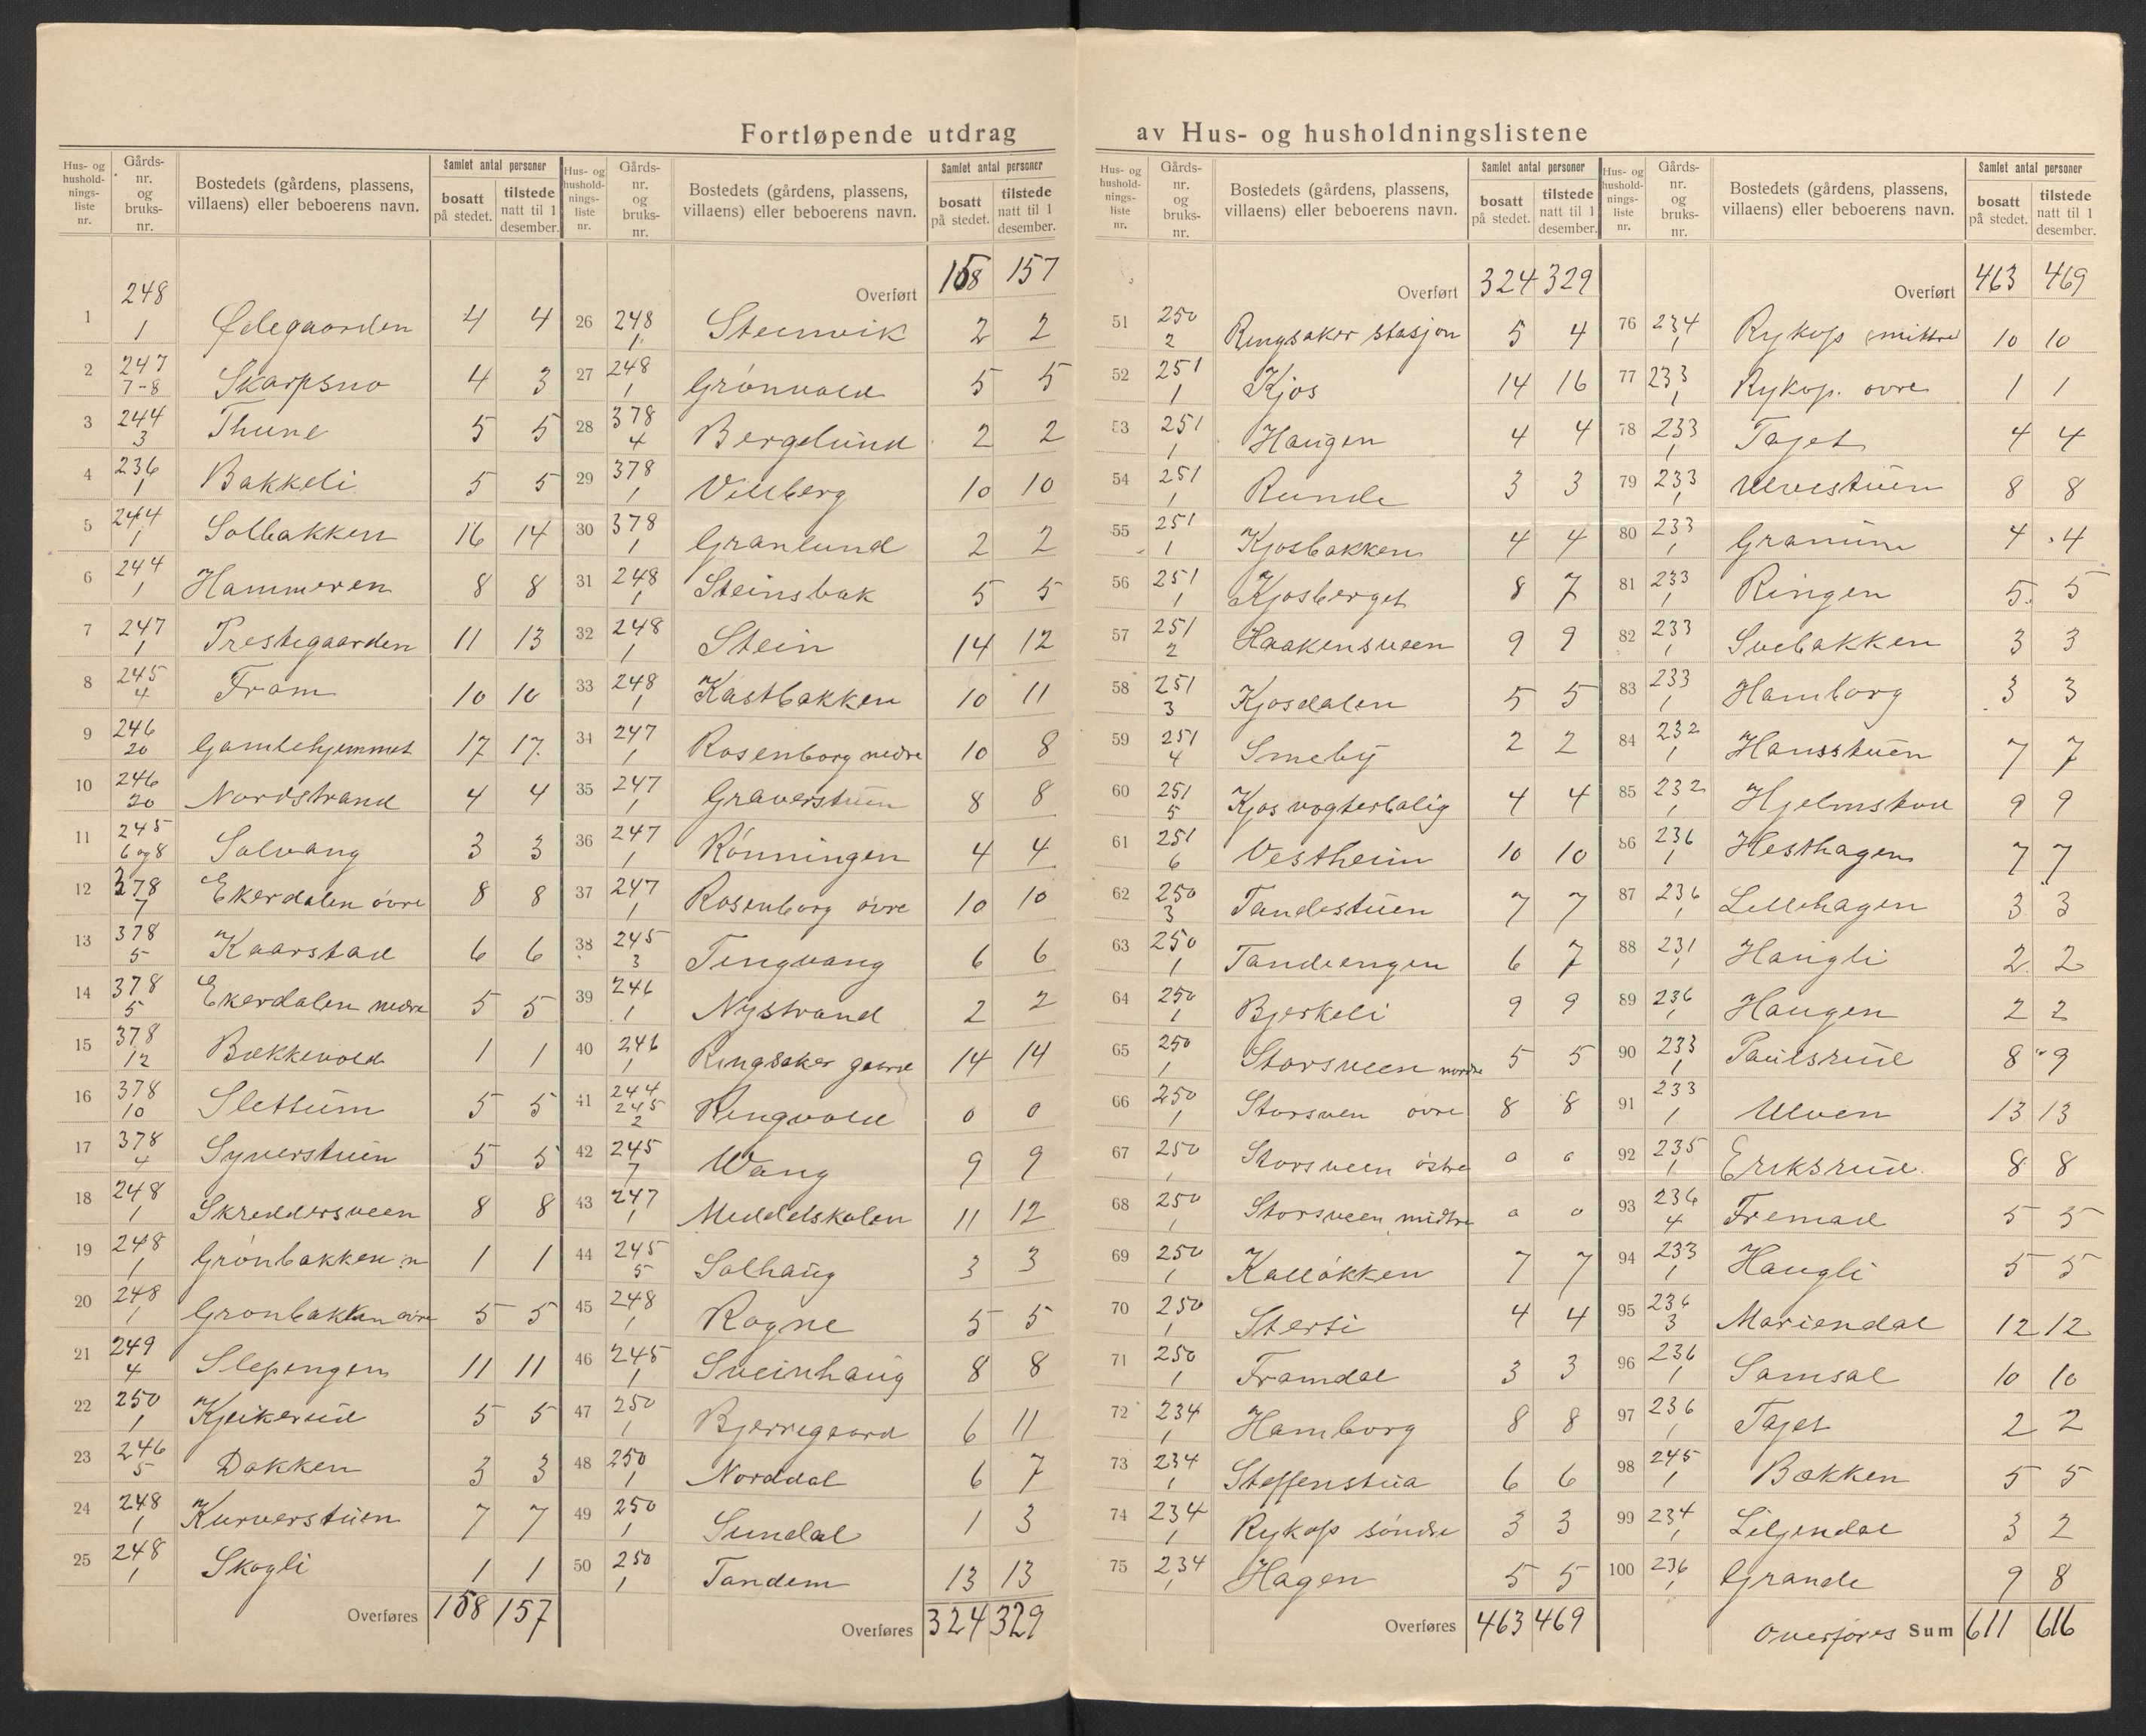 Fortløpende utdrag av Hus- og husholdningslistene
Hus- og husholdningsliste nr. | Gårds-nr. og bruks-nr. | Bostedets (gårdens, plassens, villaens) eller beboerens navn. | Samlet antal personer bosatt på stedet. | tilstede natt til 1 desember.
1 248 1 Ødegaarden 4 4
2 247 7-8 Skarpsno 4 3
3 244 3 Thune 5 5
4 236 1 Bakkeli 5 5
5 244 1 Solbakken 16 14
6 244 1 Hammeren 8 8
7 247 1 Prestegaarden 11 13
8 245 4 Fram 10 10
9 246 20 Gamlehjemmet 17 17
10 246 20 Nordstrand 4 4
11 245 6 og 8 Solvang 3 3
12 378 7 Ekerdalen øvre 8 8
13 378 5 Kaarstad 6 6
14 378 5 Ekerdalen nedre 5 5
15 378 12 Bækkevold 1 1
16 378 10 Slettum 5 5
17 378 4 Syverstuen 5 5
18 248 1 Skreddersveen 8 8
19 248 1 Grønbakken n 1 1
20 248 1 Grønbakken øvre 5 5
21 249 4 Slepengen 11 11
22 250 1 Kjeikerud 5 5
23 246 5 Dakken 3 3
24 248 1 Kurverstuen 7 7
25 248 1 Skogli 1 1
Overføres 158 157
Hus- og husholdningsliste nr. | Gårds-nr. og bruks-nr. | Bostedets (gårdens, plassens, villaens) eller beboerens navn. | Samlet antal personer bosatt på stedet. | tilstede natt til 1 desember.
Overført 158 157
26 248 1 Steenvik 2 2
27 248 1 Grønvold 5 5
28 378 4 Bergelund 2 2
29 378 1 Villberg 10 10
30 378 1 Granlund 2 2
31 248 1 Steinsbak 5 5
32 248 1 Stein 14 12
33 248 1 Kastbakken 10 11
34 247 1 Rosenborg nedre 10 8
35 247 1 Graverstuen 8 8
36 247 1 Rønningen 4 4
37 247 1 Rosenborg øvre 10 10
38 245 3 Tingvang 6 6
39 246 1 Nystrand 2 2
40 246 1 Ringsaker gaard 14 14
41 244 245 2 Ringvold 0 0
42 245 7 Wang 9 9
43 247 1 Meddelskolen 11 12
44 245 5 Solhaug 3 3
45 248 1 Rogne 5 5
46 245 1 Sveinhaug 8 8
47 250 1 Bjerregaard 6 11
48 250 1 Norddal 6 7
49 250 1 Sundal 1 3
50 250 1 Tandem 13 13
Overføres 324 329
Hus- og husholdningsliste nr. | Gårds-nr. og bruks-nr. | Bostedets (gårdens, plassens, villaens) eller beboerens navn. | Samlet antal personer bosatt på stedet. | tilstede natt til 1 desember.
Overført 324 329
51 250 2 Ringsaker stasjon 5 4
52 251 1 Kjos 14 16
53 251 1 Haugen 4 4
54 251 1 Runde 3 3
55 251 1 Kjosbakken 4 4
56 251 1 Kjosberget 8 7
57 251 2 Haakensveen 9 9
58 251 3 Kjosdalen 5 5
59 251 4 Smeby 2 2
60 251 5 Kjos vogterbolig 4 4
61 251 6 Vestheim 10 10
62 250 3 Tandestuen 7 7
63 250 1 Tandeengen 6 7
64 250 1 Bjerkeli 9 9
65 250 1 Storsveen nordre 5 5
66 250 1 Storsveen øvre 8 8
67 250 1 Storsveen østre 0 0
68 250 1 Storsveen midtre 0 0
69 250 1 Kalløkken 7 7
70 250 1 Stersi 4 4
71 250 1 Framdal 3 3
72 234 1 Hamborg 8 8
73 234 1 Steffenstua 6 6
74 234 1 Rykop søndre 3 3
75 234 1 Hagen 5 5
Overføres 463 469
Hus- og husholdningsliste nr. | Gårds-nr. og bruks-nr. | Bostedets (gårdens, plassens, villaens) eller beboerens navn. | Samlet antal personer bosatt på stedet. | tilstede natt til 1 desember.
Overført 463 469
76 234 1 Rykop mittre 10 10
77 233 1 Rykop. øvre 1 1
78 233 1 Tajet 4 4
79 233 1 Ulvestuen 8 8
80 233 1 Granum 4 4
81 233 1 Ringen 5 5
82 233 1 Svebakken 3 3
83 233 1 Hamborg 3 3
84 232 1 Hansstuen 7 7
85 232 1 Hjelmstad 9 9
86 236 1 Hesthagen 7 7
87 236 1 Lillehagen 3 3
88 231 1 Haugli 2 2
89 236 1 Haugen 2 2
90 233 1 Paulsrud 8 9
91 233 1 Ulven 13 13
92 235 1 Eriksrud 8 8
93 236 4 Fremad 5 5
94 233 1 Haugli 5 5
95 236 3 Mariendal 12 12
96 236 1 Samsal 10 10
97 236 1 Tajet 2 2
98 245 1 Bækken 5 5
99 234 1 Liljendal 3 2
100 236 1 Grande 9 8
Overføres Sum 611 616